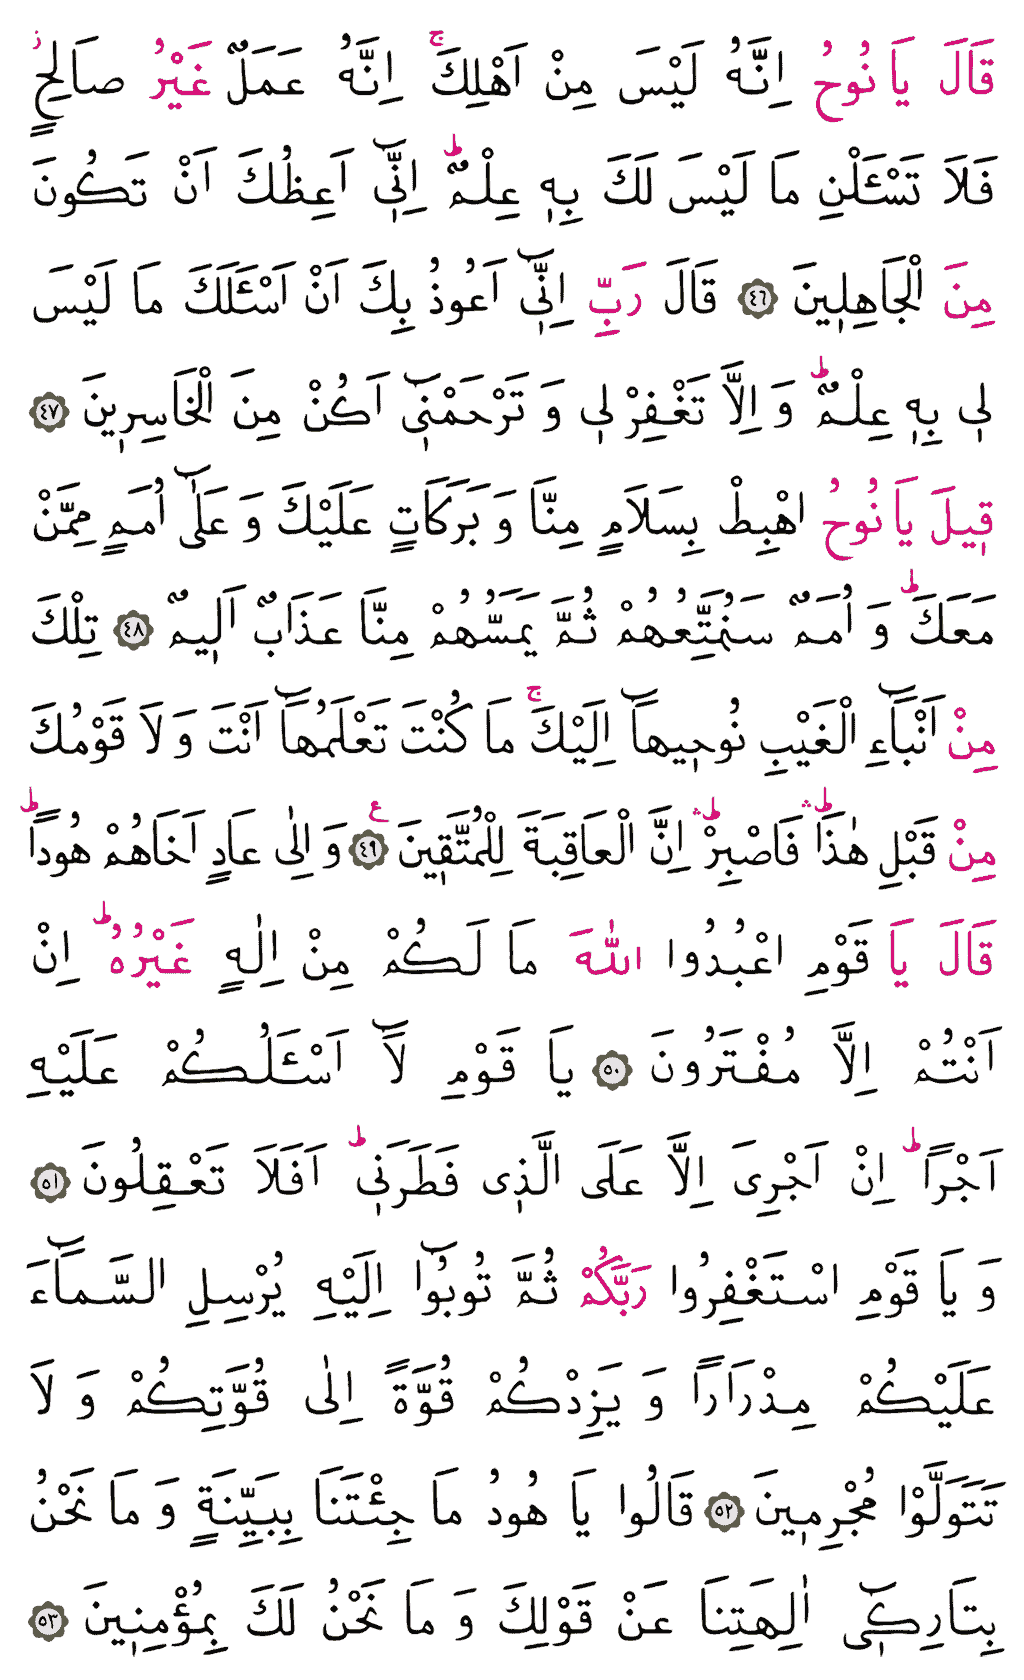 قَالَ يَا نُوحُ اِنَّهُ لَيْسَ مِنْ اَهْلِكَۚ اِنَّهُ عَمَلٌ غَيْرُ صاَلِحٍۘ
فَلَا تَسْـَٔلْنِ مَا لَيْسَ لَكَ بِهٖ عِلْمٌۜ اِنّٖٓى اَعِظُكَ اَنْ تَكُونَ
مِنَ الْجَاهِلٖينَ ﴿٤٦﴾ قَالَ رَبِّ اِنّٖٓى اَعُوذُ بِكَ اَنْ اَسْـَٔلَكَ مَا لَيْسَ
لٖى بِهٖ عِلْمٌۜ وَ اِلَّا تَغْفِرْ لٖى وَ تَرْحَمْنٖٓى اَكُنْ مِنَ الْخَاسِرٖينَ ﴿٤٧﴾
قٖيلَ يَا نُوحُ اهْبِطْ بِسَلَامٍ مِنَّا وَ بَرَكَاتٍ عَلَيْكَ وَ عَلٰٓى اُمَمٍ مِمَّنْ
مَعَكَۜ وَ اُمَمٌ سَنُمَتِّعُهُمْ ثُمَّ يَمَسُّهُمْ مِنَّا عَذَابٌ اَلٖيمٌ ﴿٤٨﴾ تِلْكَ
مِنْ اَنْبَٓاءِ الْغَيْبِ نُوحٖيهَٓا اِلَيْكَۚ مَا كُنْتَ تَعْلَمُهَٓا اَنْتَ وَ لَا قَوْمُكَ
مِنْ قَبْلِ هٰذَاۜۛ فَاصْبِرْۜۛ اِنَّ الْعَاقِبَةَ لِلْمُتَّقٖينَ ع ﴿٤٩﴾ وَ اِلٰى عَادٍ اَخَاهُمْ هُودًاۜ
قَالَ يَا قَوْمِ اعْبُدُوا اللّٰهَ مَا لَكُمْ مِنْ اِلٰهٍ غَيْرُهُۜ اِنْ
اَنْتُمْ اِلَّا مُفْتَرُونَ ﴿٥٠﴾ يَا قَوْمِ لَٓا اَسْـَٔلُكُمْ عَلَيْهِ
اَجْرًاۜ اِنْ اَجْرِىَ اِلَّا عَلَى الَّذٖى فَطَرَنٖىۜ اَفَلَا تَعْقِلُونَ ﴿٥١﴾
وَ يَا قَوْمِ اسْتَغْفِرُوا رَبَّكُمْ ثُمَّ تُوبُٓوا اِلَيْهِ يُرْسِلِ السَّمَٓاءَ
عَلَيْكُمْ مِدْرَارًا وَ يَزِدْكُمْ قُوَّةً اِلٰى قُوَّتِكُمْ وَ لَا
تَتَوَلَّوْا مُجْرِمٖينَ ﴿٥٢﴾ قَالُوا يَا هُودُ مَا جِئْتَنَا بِبَيِّنَةٍ وَ مَا نَحْنُ
بِتَارِكٖٓى اٰلِهَتِنَا عَنْ قَوْلِكَ وَ مَا نَحْنُ لَكَ بِمُؤْمِنٖينَ ﴿٥٣﴾